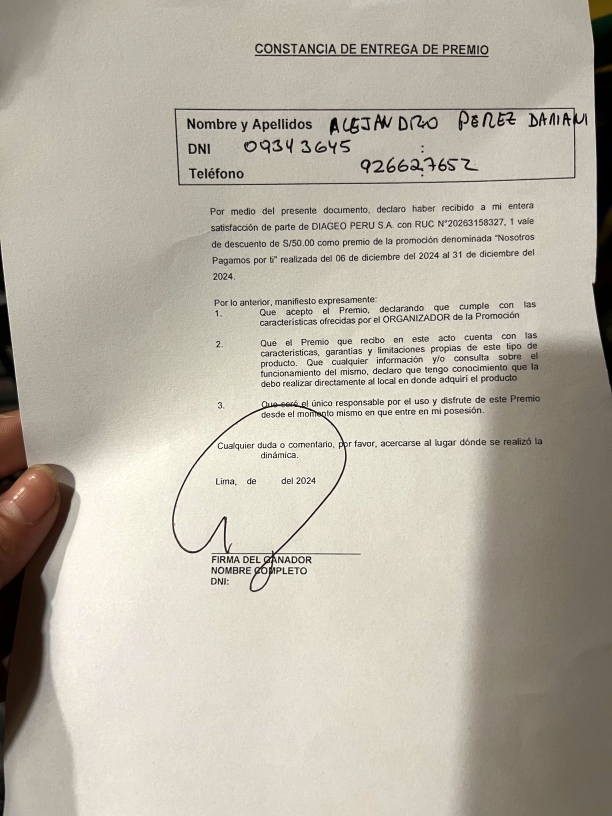 CONSTANCIA DE ENTREGA DE PREMIO
Nombre y Apellidos ALEJANDRO PEREZ DAMIANI
DNI 09343645 :
Teléfono 926627652
Por medio del presente documento, declaro haber recibido a mi entera
satisfacción de parte de DIAGEO PERU S.A. con RUC N°20263158327, 1 vale
de descuento de S/50.00 como premio de la promoción denominada "Nosotros
Pagamos por ti" realizada del 06 de diciembre del 2024 al 31 de diciembre del
2024.
Por lo anterior, manifiesto expresamente:
1. Que acepto el Premio, declarando que cumple con las
características ofrecidas por el ORGANIZADOR de la Promoción
2. Que el Premio que recibo en este acto cuenta con las
características, garantías y limitaciones propias de este tipo de
producto. Que cualquier información y/o consulta sobre el
funcionamiento del mismo, declaro que tengo conocimiento que la
debo realizar directamente al local en donde adquirí el producto
3. Que seré el único responsable por el uso y disfrute de este Premio
desde el momento mismo en que entre en mi posesión.
Cualquier duda o comentario, por favor, acercarse al lugar dónde se realizó la
dinámica.
Lima, de del 2024
FIRMA DEL GANADOR
NOMBRE COMPLETO
DNI: